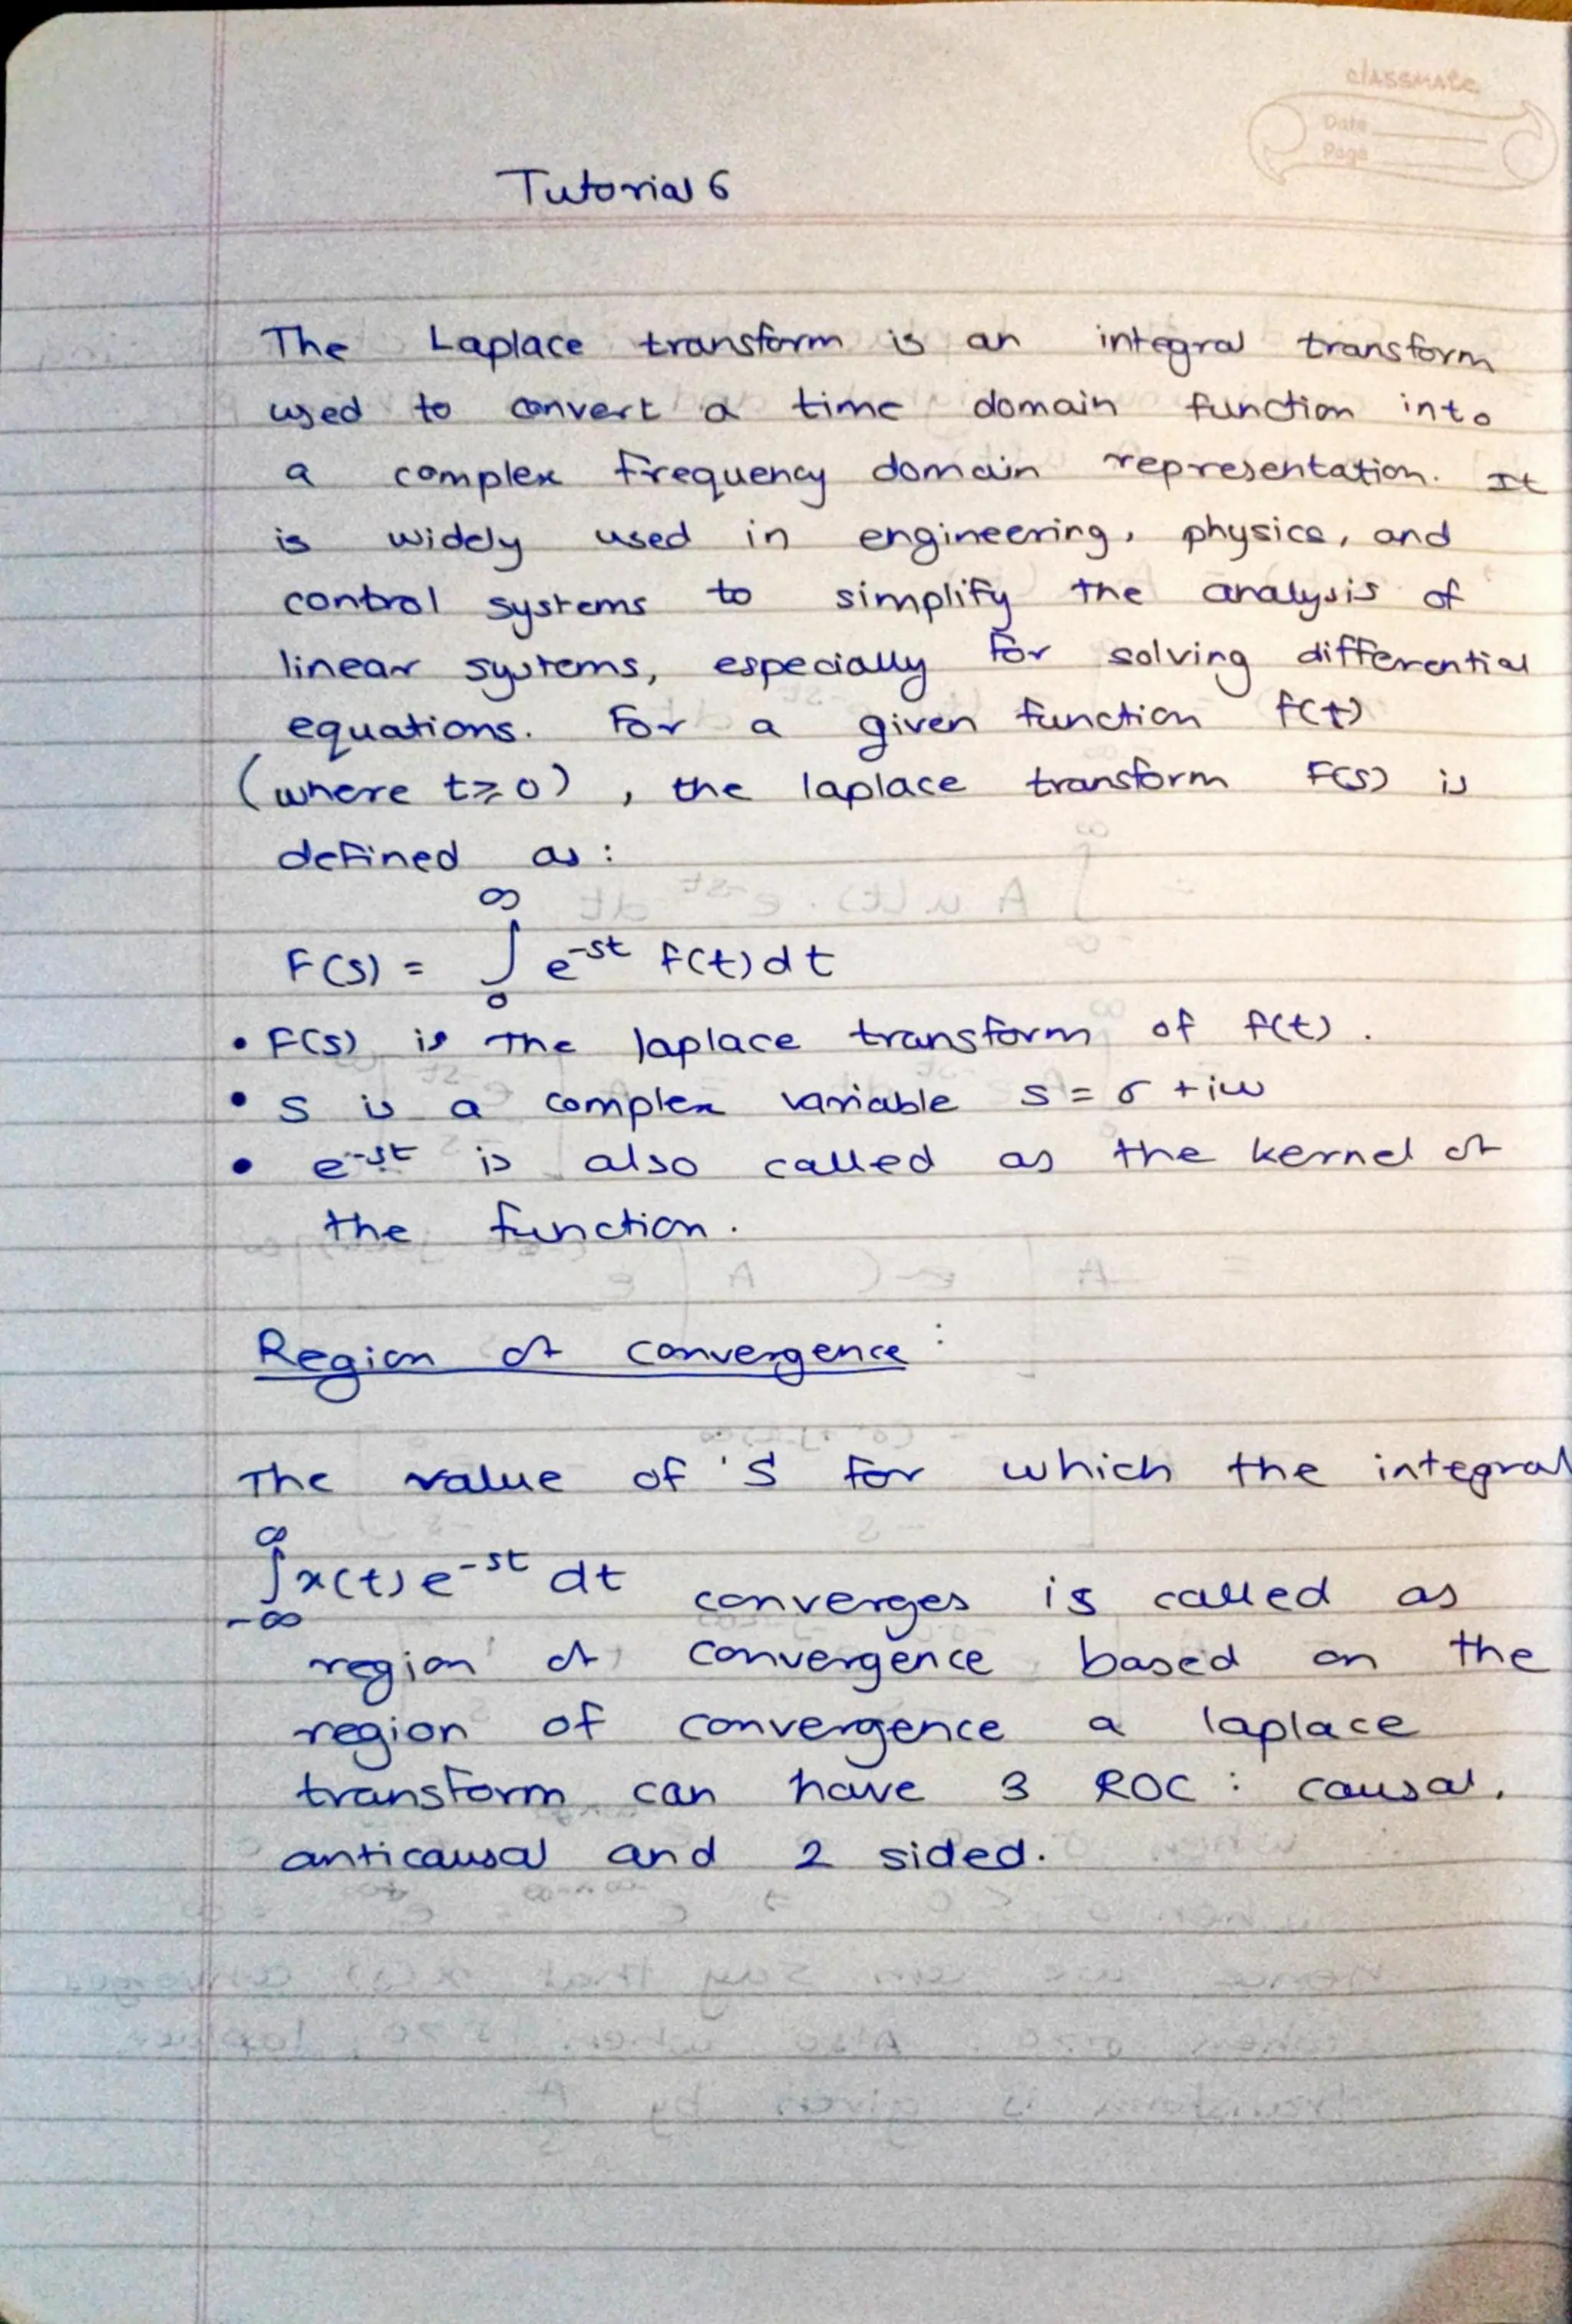 classmate
Date
Page
Tutorial 6
The Laplace transform is an integral transform
used to convert a time domain function into
a complex frequency domain representation. It
is widely used in engineering, physics, and
control systems to simplify the analysis of
linear systems, especially for solving differential
equations. For a given function f(t)
(where t≥0), the laplace transform F(s) is
defined as:
F(s) = ∫₀^∞ e^-st f(t) dt
• F(s) is the laplace transform of f(t).
• s is a complex variable s = σ + iω
• e^-st is also called as the kernel of
the function.
Region of convergence:
The value of 'S' for which the integral
∫_-∞^∞ x(t) e^-st dt converges is called as
region of convergence based on the
region of convergence a laplace
transform can have 3 ROC: causal,
anticausal and 2 sided.